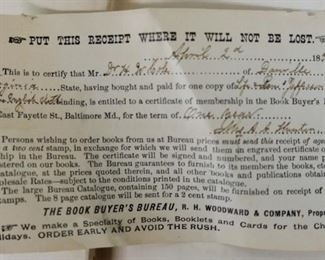 PUT THIS RECEIPT WHERE IT WILL NOT BE LOST.
April 2d 18
This is to certify that Mr
State, having bought and paid for one copy of
Binding, is entitled to a certificate of membership in the Book Buyer's
East Fayette St., Baltimore Md., for the term of One Year.
Persons wishing to order books from us at Bureau prices must send this receipt of
a two cent stamp, in exchange for which we will send them an engraved certificate o
ship in the Bureau. The certificate will be signed and numbered, and your name
istered on our books. The Bureau guarantees to furnish to its members the books, etc
Catalogue, at the prices quoted therein, and all other books not in the Catalogue
olesale Rates—subject to the conditions printed in the catalogue.
The large Bureau Catalogue, containing 150 pages, will be furnished on receipt of
stamps. The 8 page catalogue will be sent for a 2 cent stamp.
THE BOOK BUYER'S BUREAU, R. H. WOODWARD & COMPANY, Prop
We make a Specialty of Books, Booklets and Cards for the Ch
olidays. ORDER EARLY AND AVOID THE RUSH.